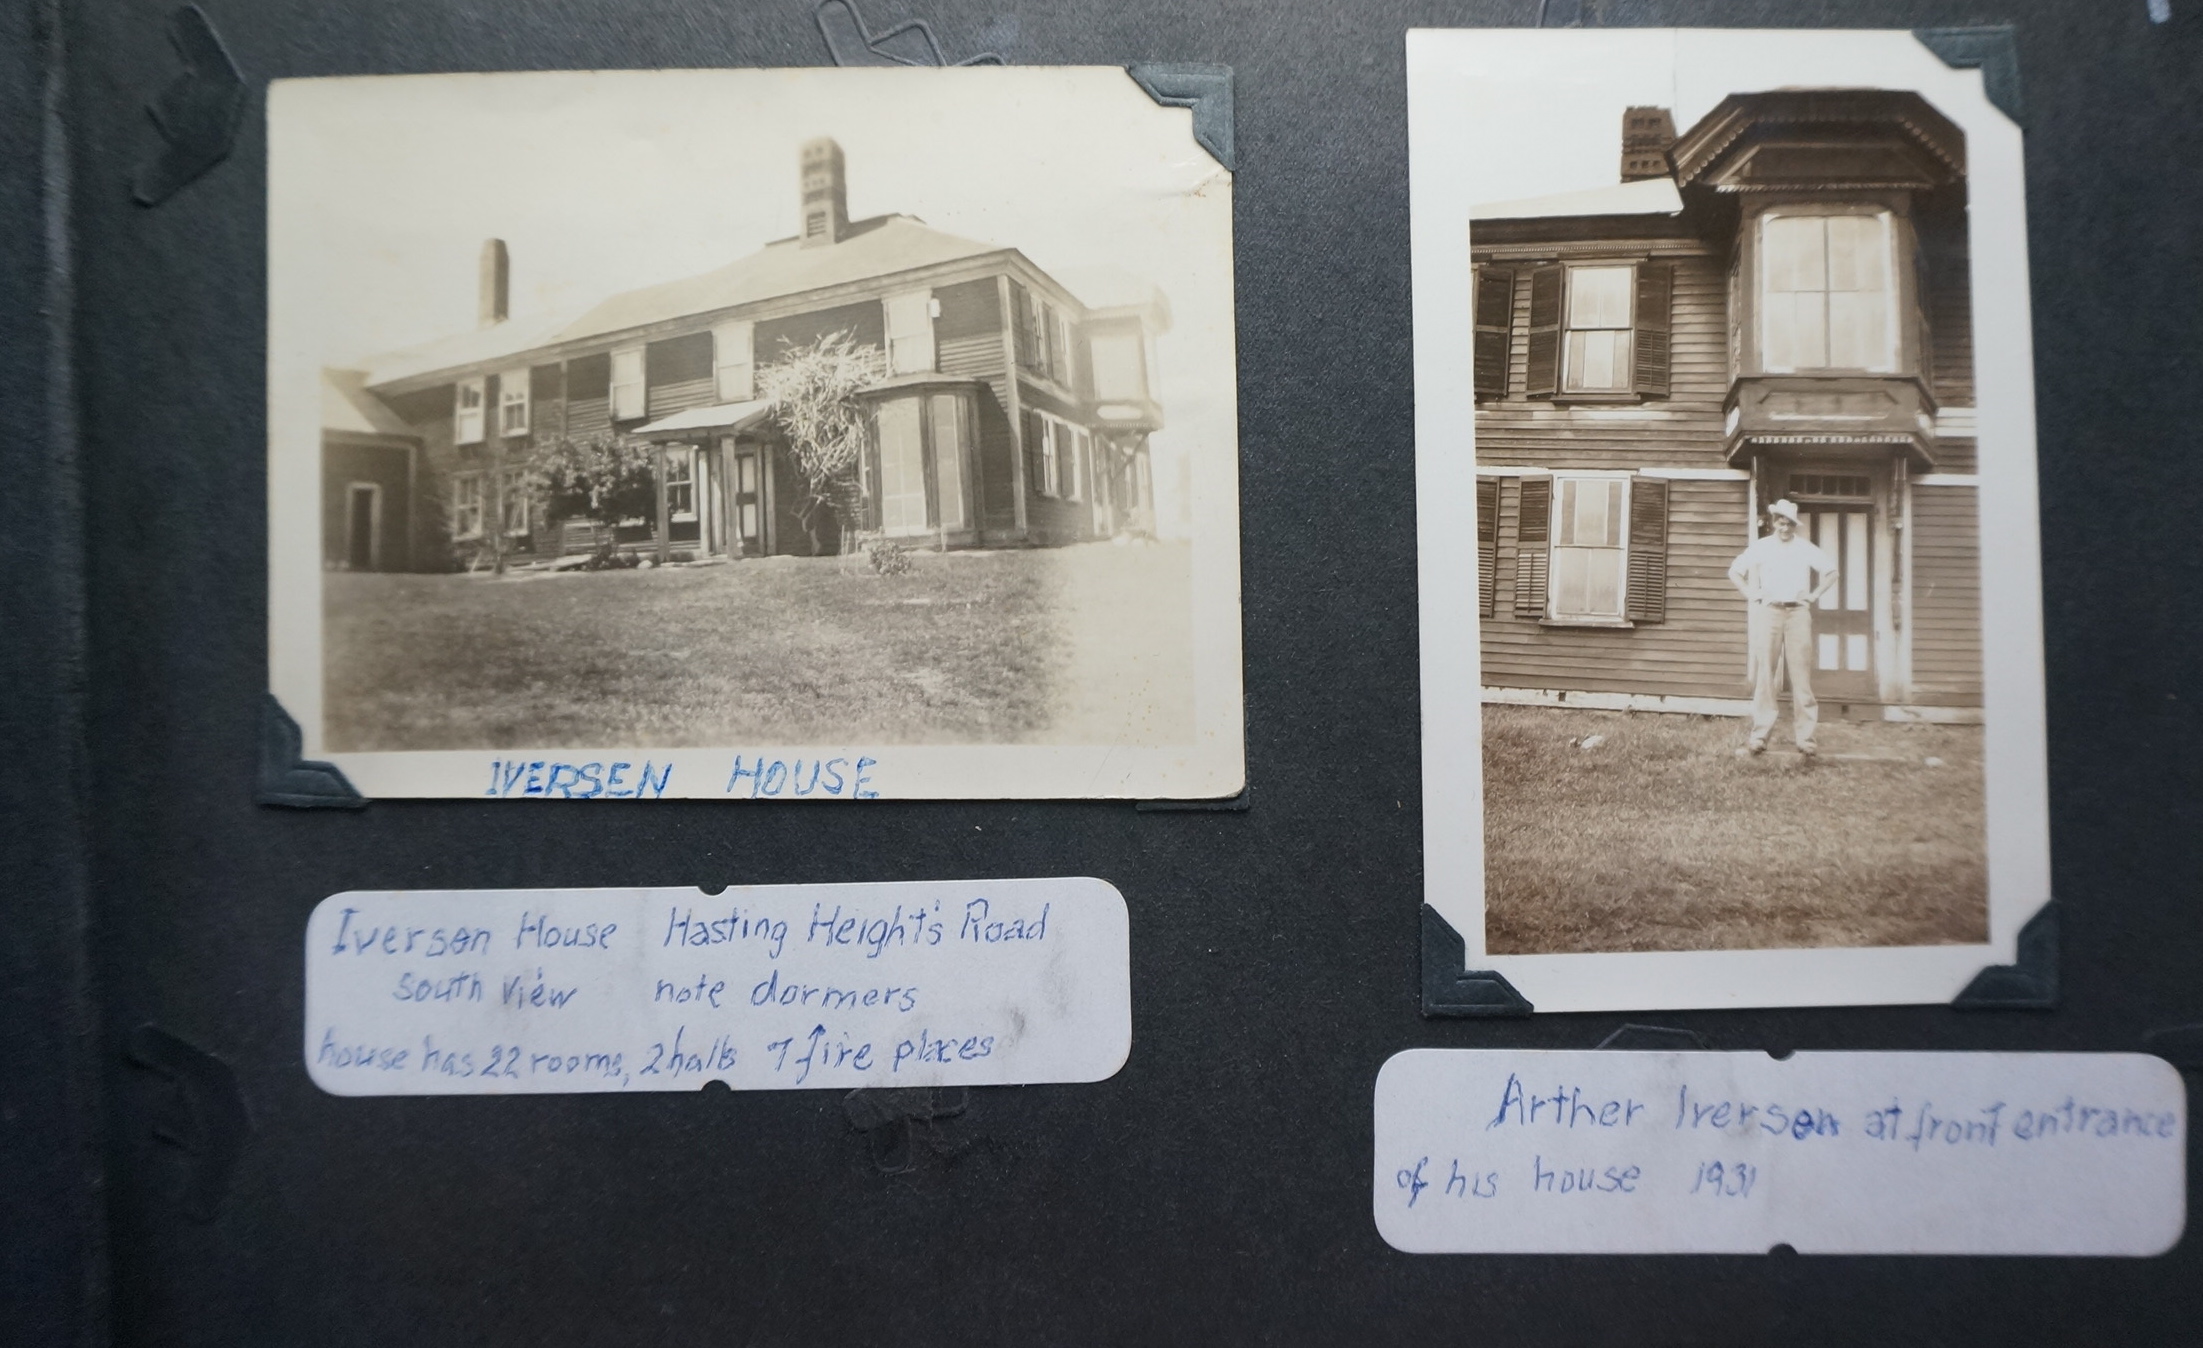 IVERSEN HOUSE
Iversen House Hasting Height's Road
south view note dormers
house has 22 rooms, 2 halls 7 fire places
Arther Iversen at front entrance
of his house 1931